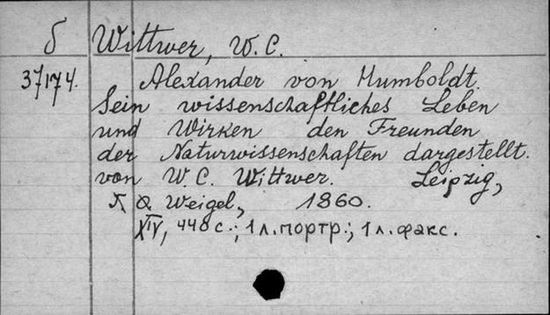 δ Wittwer, W. C.
37174. Alexander von Humboldt.
Sein wissenschaftliches Leben
und Wirken den Freunden
der Naturwissenschaften dargestellt.
von W. C. Wittwer. Leipzig,
Weigel, 1860.
XIV, 448 с.; 1 л. портр.; 1 л. факс.